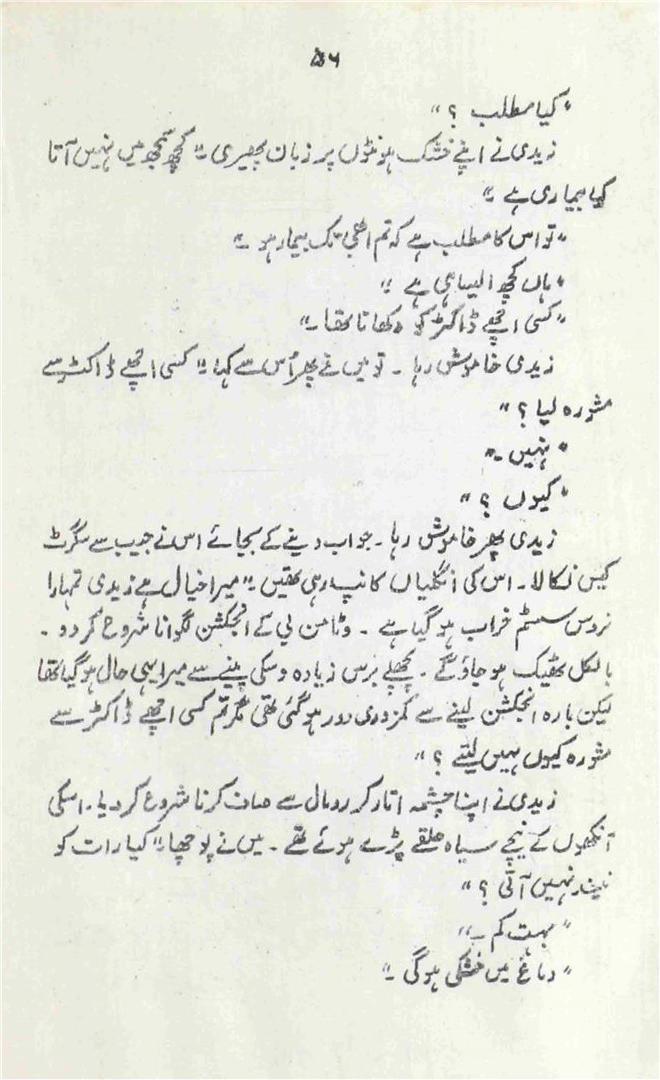 ۵۶
"کیا مطلب ؟"
زیدی نے اپنے خشک ہونٹوں پر زبان پھیری ۔" کچھ سمجھ میں نہیں آتا
کیا بیماری ہے ۔"
"تو اس کا مطلب ہے کہ تم ابھی تک بیمار ہو ۔"
"ہاں کچھ ایسا ہی ہے ۔"
"کسی اچھے ڈاکٹر کو دکھانا تھا ۔"
زیدی خاموش رہا ۔ تو میں نے پھر اُس سے کہا ۔" کسی اچھے ڈاکٹر سے
مشورہ لیا ؟"
"نہیں ۔"
"کیوں ؟"
زیدی پھر خاموش رہا ۔ جواب دینے کے بجائے اس نے جیب سے سگرٹ
کیس نکالا ۔ اس کی انگلیاں کانپ رہی تھیں ۔" میرا خیال ہے زیدی تمہارا
نروس سسٹم خراب ہو گیا ہے ۔ وٹامن بی کے انجکشن لگوانا شروع کر دو ۔
بالکل ٹھیک ہو جاؤ گے ۔ پچھلے برس زیادہ وسکی پینے سے میرا یہی حال ہو گیا تھا
لیکن بارہ انجکشن لینے سے کمزوری دور ہو گئی تھی مگر تم کسی اچھے ڈاکٹر سے
مشورہ کیوں نہیں لیتے ؟"
زیدی نے اپنا چشمہ اتار کر رومال سے صاف کرنا شروع کر دیا ۔ اسکی
آنکھوں کے نیچے سیاہ حلقے پڑے ہوئے تھے ۔ میں نے پوچھا ۔" کیا رات کو
نیند نہیں آتی ؟"
"بہت کم ۔"
"دماغ میں خشکی ہو گی ۔"